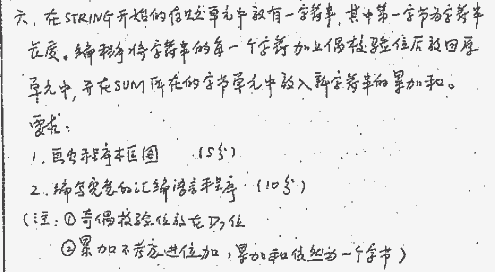 六、在STRING开始的存贮单元中放有一字符串,其中第一字节为字符串
长度。编程序将字符串的每一个字符加上偶校验位后放回原
单元中,并在SUM所在的字节单元中放入新字符串的累加和。
要求:
1. 画出程序框图 (5分)
2. 编写完整的汇编语言程序 (10分)
(注:①奇偶校验位放在D7位
②累加不考虑进位加,累加和依然为一个字节)